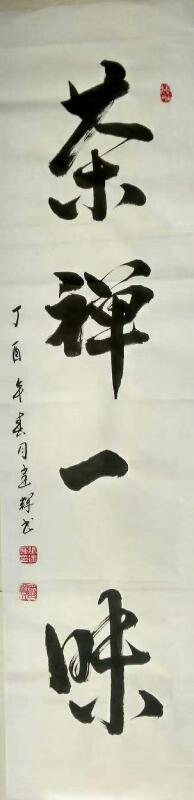 茶禅一味
丁酉年春月建辉书